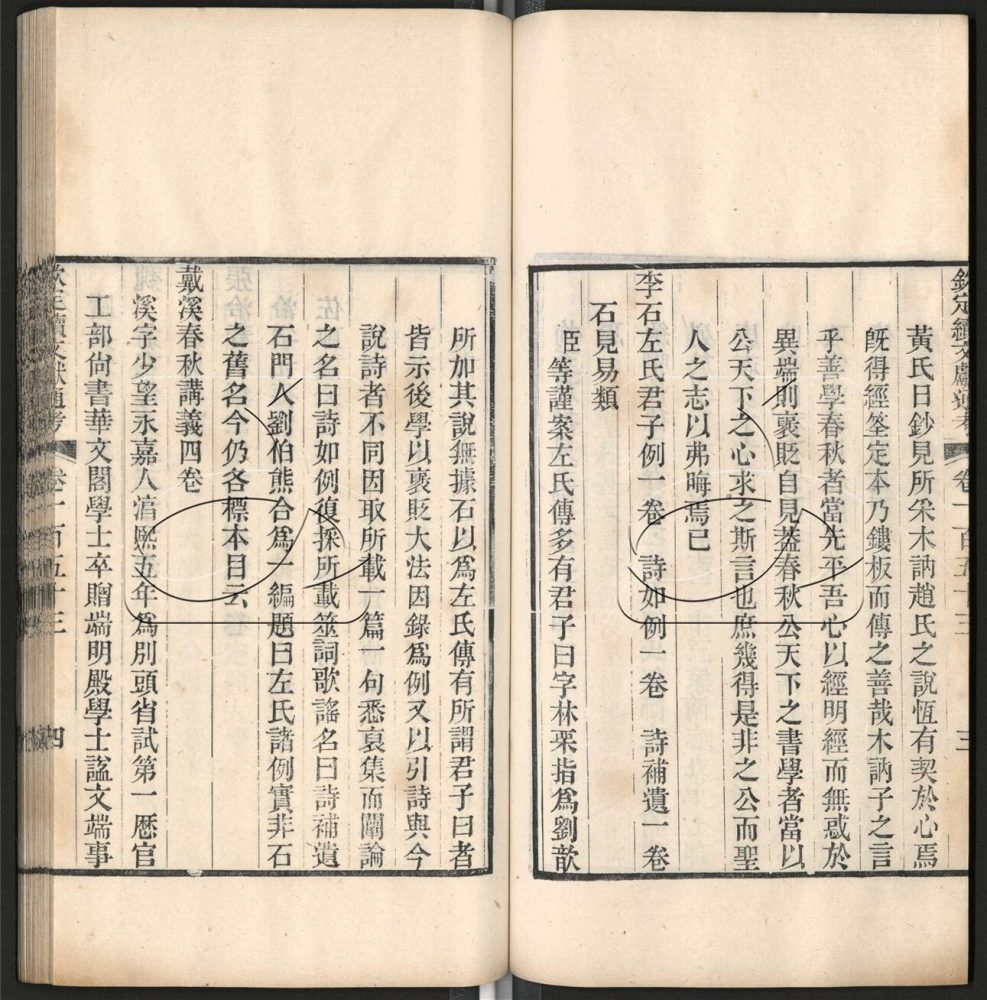 欽定續文獻通考 卷一百五十三 三
黃氏日鈔見所采木訥趙氏之說恆有契於心焉
旣得經筌定本乃鏤板而傳之善哉木訥子之言
乎善學春秋者當先平吾心以經明經而無惑於
異端則裦貶自見蓋春秋公天下之書學者當以
公天下之心求之斯言也庶幾得是非之公而聖
人之志以弗晦焉已
李石左氏君子例一卷 詩如例一卷 詩補遺一卷
石見易類
臣等謹案左氏傳多有君子曰字林栗指爲劉歆
所加其說無據石以爲左氏傳有所謂君子曰者
皆示後學以裦貶大法因錄爲例又以引詩與今
說詩者不同因取所載一篇一句悉裒集而闡論
之名曰詩如例復採所載筮詞歌謠名曰詩補遺
石門人劉伯熊合爲一編題曰左氏諸例實非石
之舊名今仍各標本目云
戴溪春秋講義四卷
溪字少望永嘉人淳熙五年爲別頭省試第一歷官
工部尙書華文閣學士卒贈端明殿學士諡文端事
欽定續文獻通考 卷一百五十三 四